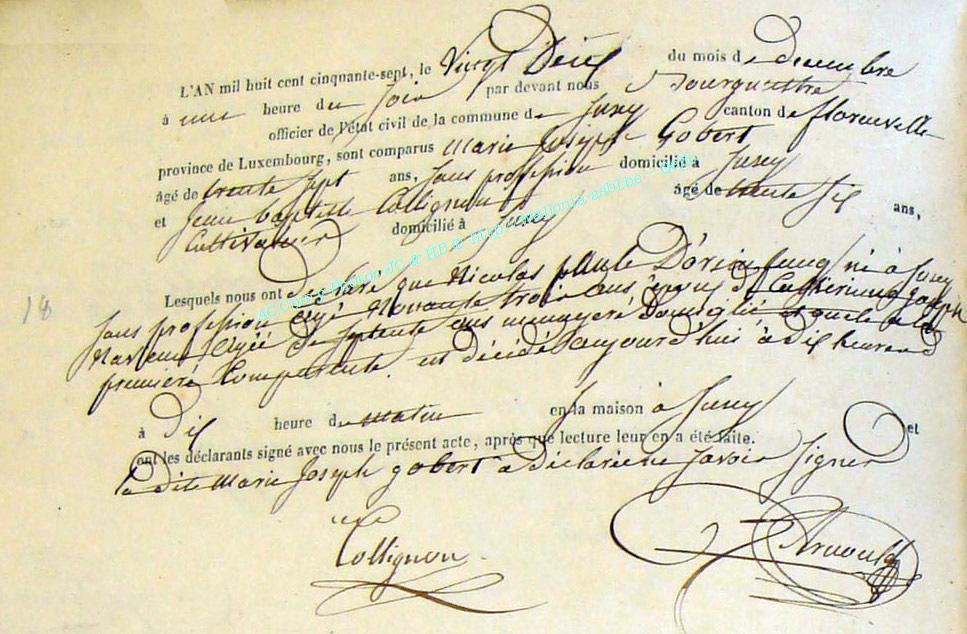 L'AN mil huit cent cinquante-sept, le Vingt Deux du mois de Decembre
à une heure du soir par devant nous
officier de l'état civil de la commune de Suxy canton de florenville
province de Luxembourg, sont comparus Marie Joseph Gobert
âgé de trente sept ans, sans profession domicilié à Suxy
et Jean Baptiste Collignon âgé de trente six ans,
Cultivateur domicilié à Suxy
Lesquels nous ont déclaré que Nicolas né à Suxy
sans profession agé Nonante trois ans époux de Catherine Joseph
agée de septente ans menagere
premiere Comparente est décédé aujourd'hui à dix heures
à dix heure du matin en la maison à Suxy et
ont les déclarants signé avec nous le présent acte, après que lecture leur en a été faite.
la dite Marie Joseph gobert a déclaré ne savoir signer
Collignon
Arnould
18